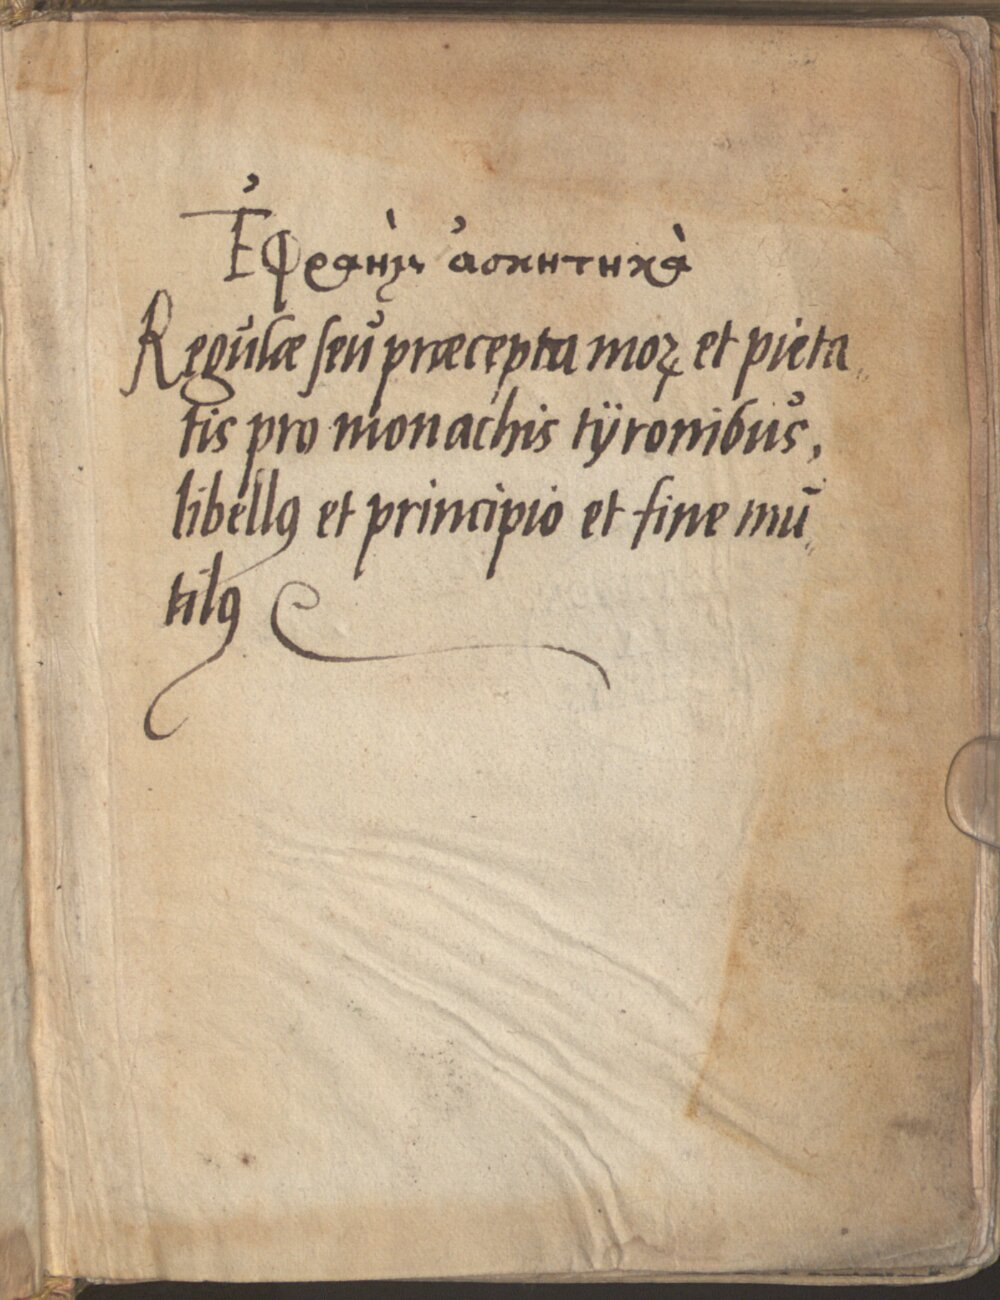 Ἐφραὴμ ἀσκητικὰ
Regulæ seu præcepta moꝝ et pieta„
tis pro monachis tÿronibus,
libellꝰ et principio et fine mū„
tilꝰ